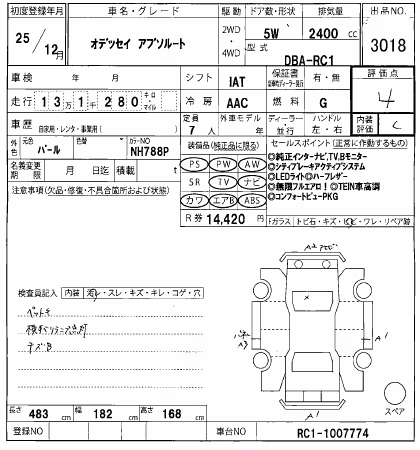 初度登録年月 車名・グレード 駆動 ドア数・形状 排気量 出品NO.
25/12月 オデッセイ アブソルート 2WD・4WD 5W 2400cc 3018
型式 DBA-RC1
車検 年 月 シフト IAT 保証書 有・無 評価点
走行 131280 キロ・マイル 冷房 AAC 燃料 G 4
車歴 自家用・レンタ・事業用( ) 定員 7人 外車モデル 年 ディーラー・並行 ハンドル 左・右 内装評価 C
外色 元色 パール 色替 カラーNO NH788P
装備品(純正品に限る) セールスポイント(正常に作動するもの)
名義変更期限 月 日迄 積載 t
PS PW AW
SR TV ナビ
カワ エアB ABS
◎純正インターナビ,TV,Bモニター
◎シティブレーキアクティブシステム
◎LEDライト◎ハーフレザー
◎無限フルエアロ!◎TEIN車高調
◎コンフォートビューPKG
注意事項(欠品・修復・不具合箇所および状態)
R券 14,420円
Fガラス トビ石・キズ・ヒビ・ワレ・リペア跡
検査員記入 内装 汚れ・スレ・キズ・キレ・コゲ・穴
キズB
A2
A3
A1
A1
スペア
長さ 483cm 幅 182cm 高さ 168cm
登録NO 車台NO RC1-1007774